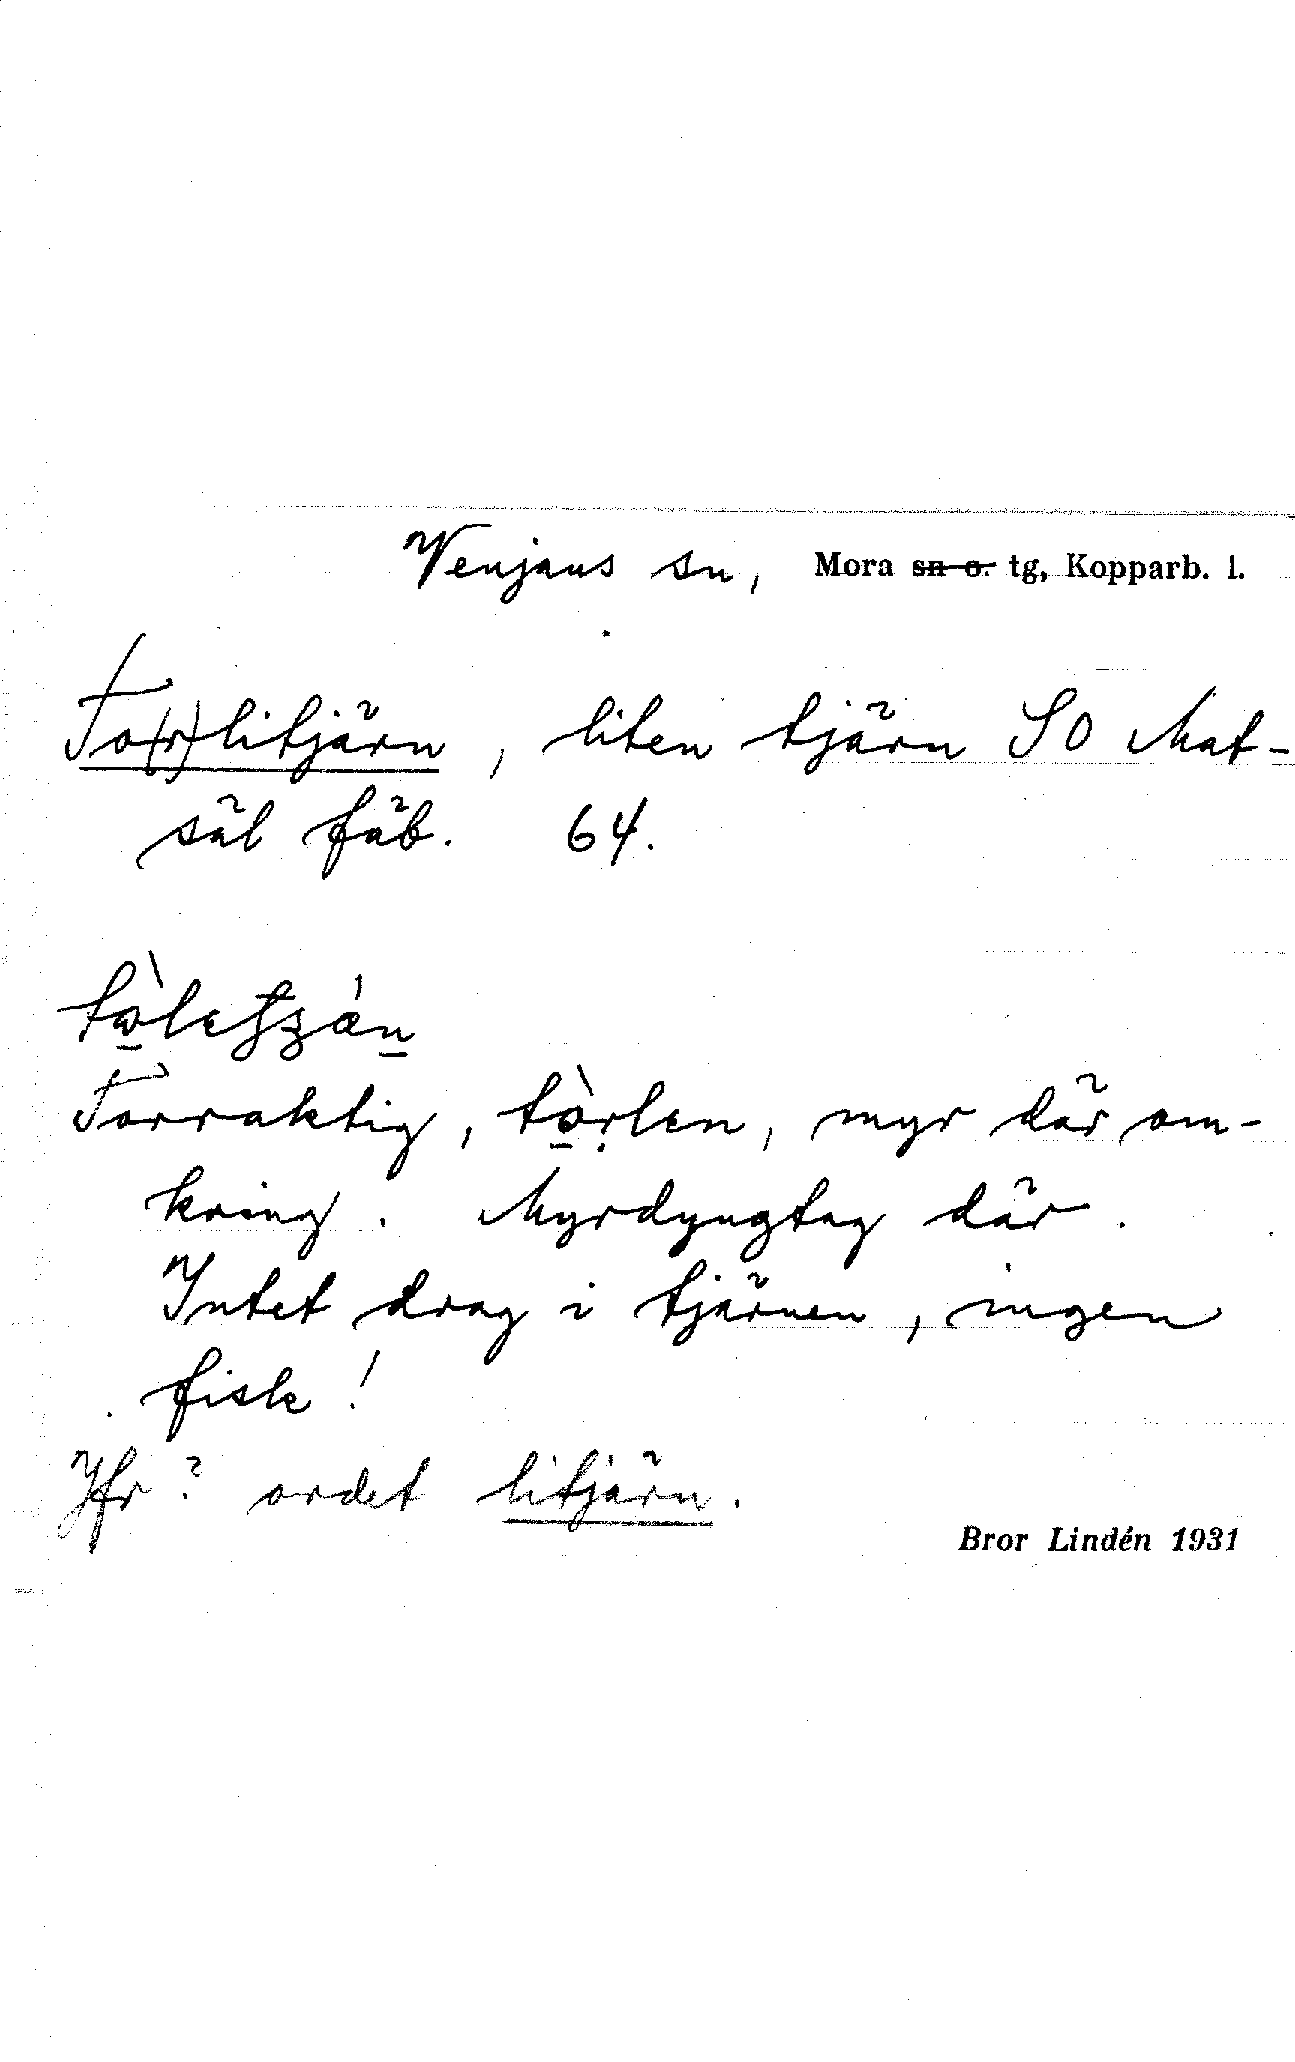 Venjans sn, Mora sn o. tg, Kopparb. l.
To(r)litjärn, liten tjärn SO Mat-
säl fäb. 64.
Torraktig, tòrlen, myr där om-
kring. Myrdyngtag där.
Intet drag i tjärnen, ingen
fisk!
Jfr? ordet litjärn.
Bror Lindén 1931